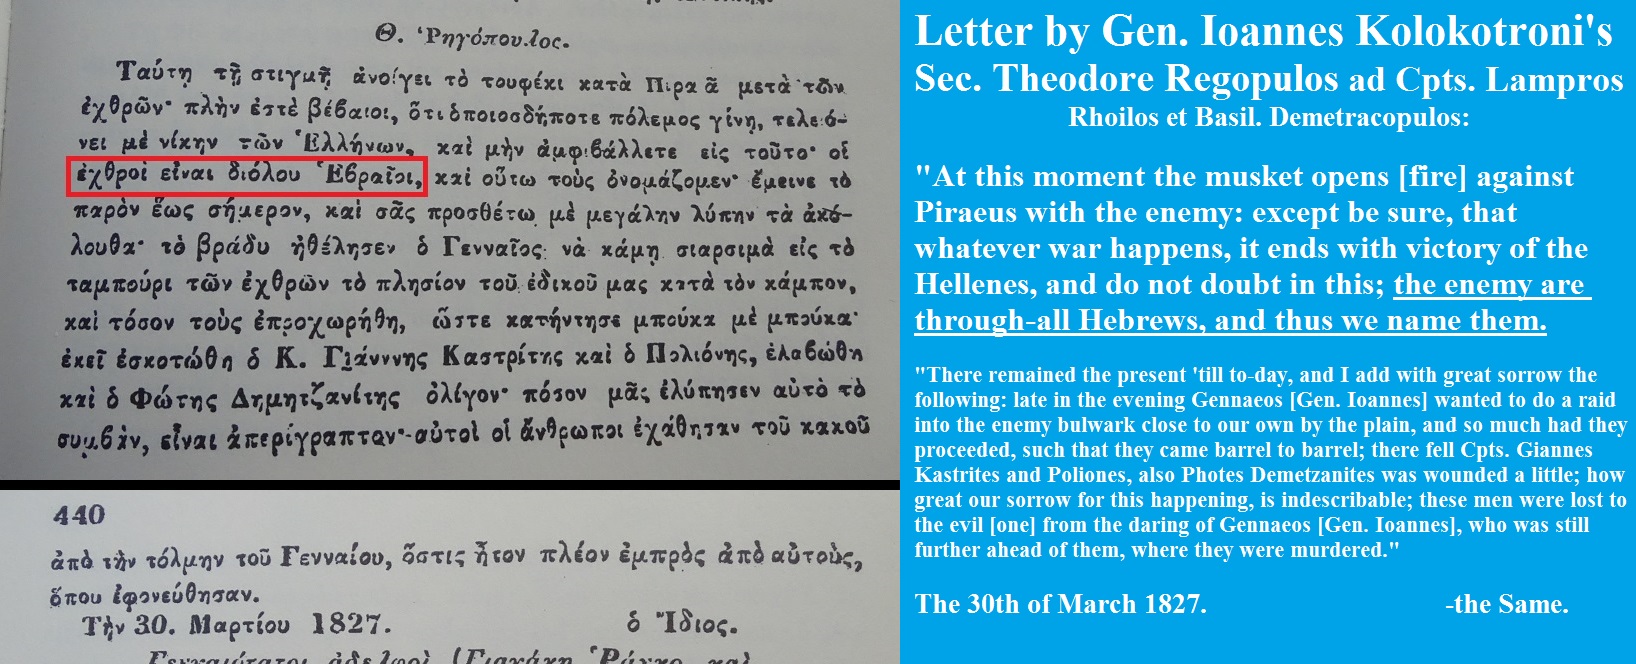 Θ. Ῥηγόπουλος.
Ταύτη τῇ στιγμῇ ἀνοίγει τὸ τουφέκι κατὰ Πιραᾶ μετὰ τῶν
ἐχθρῶν· πλὴν ἐστὲ βέβαιοι, ὅτι ὁποιοσδήποτε πόλεμος γίνῃ, τελειό-
νει μὲ νίκην τῶν Ἑλλήνων, καὶ μὴν ἀμφιβάλλετε εἰς τοῦτο· οἱ
ἐχθροὶ εἶναι διόλου Ἑβραῖοι, καὶ οὕτω τοὺς ὀνομάζομεν· ἔμεινε τὸ
παρὸν ἕως σήμερον, καὶ σᾶς προσθέτω μὲ μεγάλην λύπην τὰ ἀκό-
λουθα· τὸ βράδυ ἠθέλησεν ὁ Γενναῖος νὰ κάμῃ σιαρσιμὰ εἰς τὸ
ταμπούρι τῶν ἐχθρῶν τὸ πλησίον τοῦ ἐδικοῦ μας κατὰ τὸν κάμπον,
καὶ τόσον τοὺς ἐπροχωρήθη, ὥστε κατήντησε μπούκα μὲ μπούκα·
ἐκεῖ ἐσκοτώθη ὁ Κ. Γιάνννης Καστρίτης καὶ ὁ Πολιόνης, ἐλαβώθη
καὶ ὁ Φώτης Δημητζανίτης ὀλίγον· πόσον μᾶς ἐλύπησεν αὐτὸ τὸ
συμβὰν, εἶναι ἀπερίγραπτον· αὐτοὶ οἱ ἄνθρωποι ἐχάθησαν τοῦ κακοῦ
440
ἀπὸ τὴν τόλμην τοῦ Γενναίου, ὅστις ἦτον πλέον ἐμπρὸς ἀπὸ αὐτοὺς,
ὅπου ἐφονεύθησαν.
Τὴν 30. Μαρτίου 1827. ὁ Ἴδιος.
Γενναιότατοι ἀδελφοὶ
Letter by Gen. Ioannes Kolokotroni's
Sec. Theodore Regopulos ad Cpts. Lampros
Rhoilos et Basil. Demetracopulos:
"At this moment the musket opens [fire] against
Piraeus with the enemy: except be sure, that
whatever war happens, it ends with victory of the
Hellenes, and do not doubt in this; the enemy are
through-all Hebrews, and thus we name them.
"There remained the present 'till to-day, and I add with great sorrow the
following: late in the evening Gennaeos [Gen. Ioannes] wanted to do a raid
into the enemy bulwark close to our own by the plain, and so much had they
proceeded, such that they came barrel to barrel; there fell Cpts. Giannes
Kastrites and Poliones, also Photes Demetzanites was wounded a little; how
great our sorrow for this happening, is indescribable; these men were lost to
the evil [one] from the daring of Gennaeos [Gen. Ioannes], who was still
further ahead of them, where they were murdered."
The 30th of March 1827. -the Same.